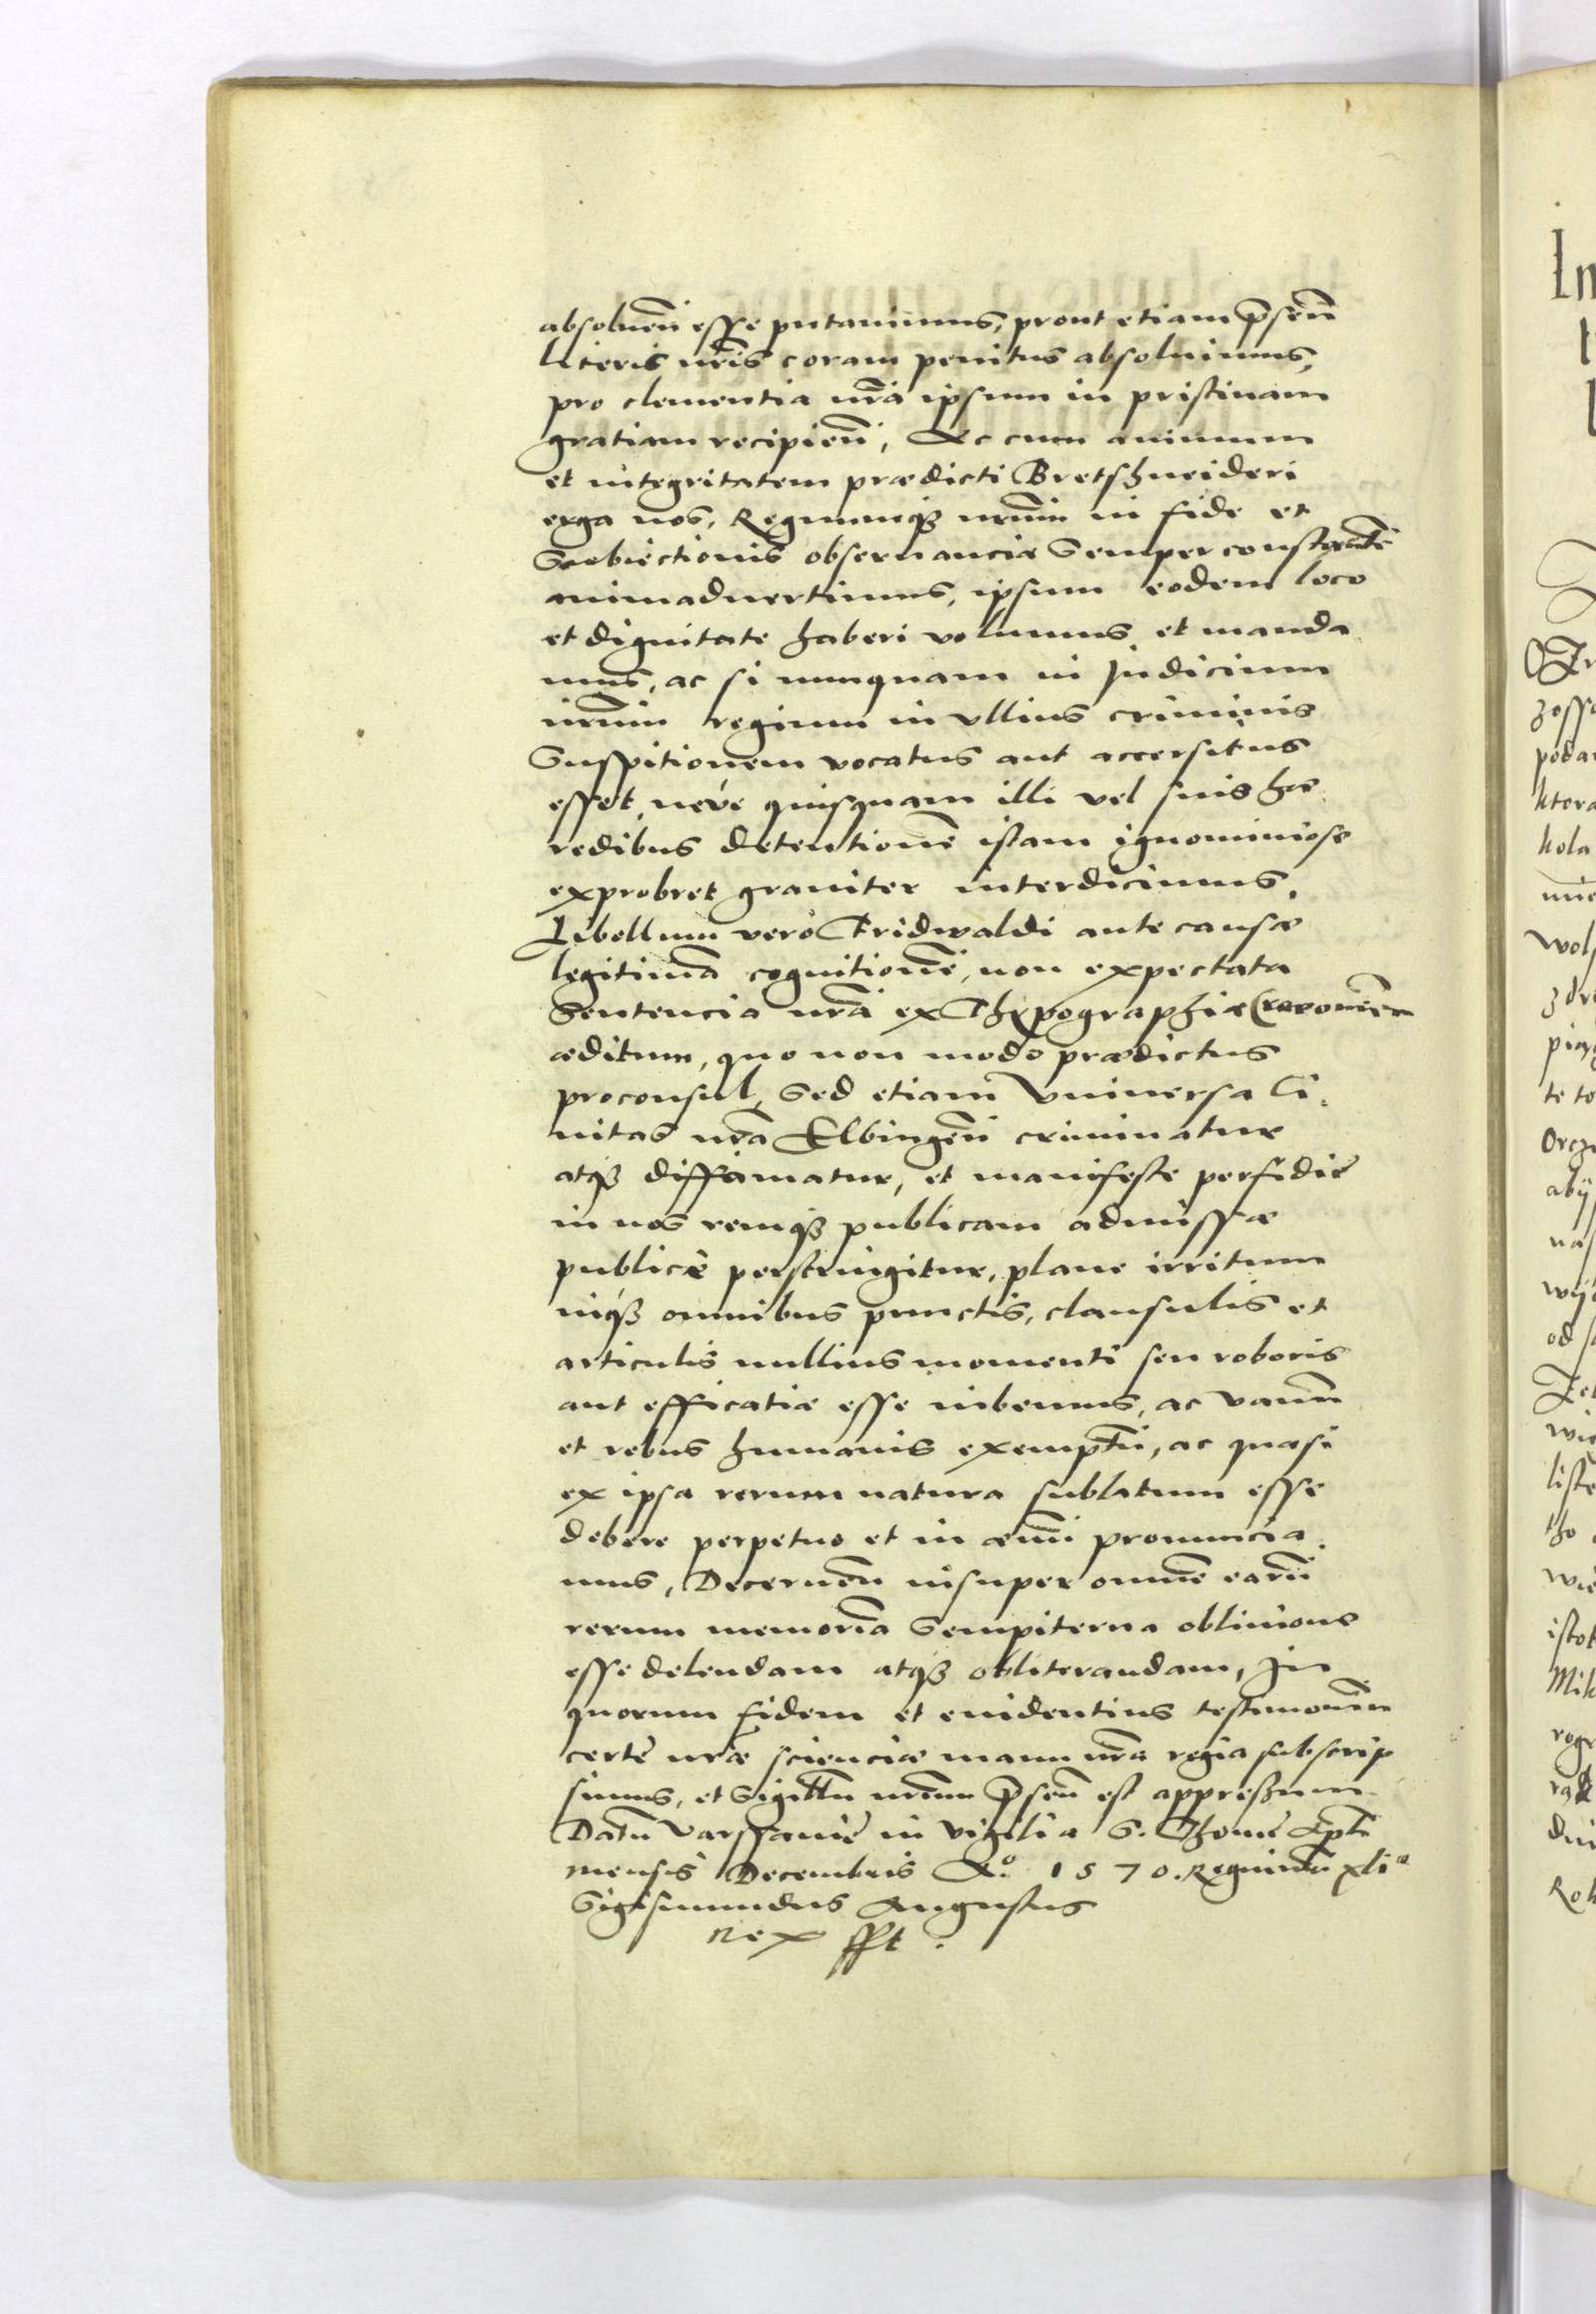 absoluen̄ esse putauimus, prout etiam p̄sen̄
literis nr̄is coram penitus absoluimus,
pro clementia nr̄a ipsum in pristinam
gratiam recipien̄, Ac cum animum
et integritatem prædicti Bretschneideri
erga nos, Regnumq₃ nr̄um in fide et
Subiectionis obseruancia Semper constantē
animaduertimus, ipsum eodem loco
et dignitate haberi volumus et manda
mus, ac si nunquam in Judicium
nr̄um regium in vllius criminis
Suspitionem vocatus aut accersitus
esset, neve quisquam illi vel suis hæ
redibus detentionē istam ignominiose
exprobret grauiter interdicimus.
Libellum verò Fridwaldi ante causæ
legitimā cognitionē, non expectata
Sentencia nr̄a ex Thypographia Cracouien̄
æditum, quo non modo prædictus
proconsul, Sed etiam Vniuersa Ci
uitas nr̄a Elbingen̄ criminatur
atq₃ diffamatur, et manifeste perfidiæ
in nos remq₃ publicam admissæ
publicè perstringitur, plane irritum
inq₃ omnibus punctis, clausulis et
articulis nullius momenti seu roboris
aut efficatiæ esse iubemus, ac vanum̄
et rebus humanis exemptū, ac quasi
ex ipsa rerum natura sublatum esse
debere perpetuo et in æuū pronuncia
mus, Decernen̄ insuper omnē earū
rerum memoriā Sempiterna obliuione
esse delendam atq₃ obliterandam, In
quorum fidem et euidentius testimoniū
certè nr̄æ scienciæ manu nr̄a regia subscrip
simus, et Sigillū nr̄um p̄sen̄ est appressum
Datū Varssauiè in vigilia S. Thomè Apl̄i
mensis Decembris Aᵒ. 1570. Regni nr̄i xliᵒ
Sigismundus Augustus
Rex sst.
Im